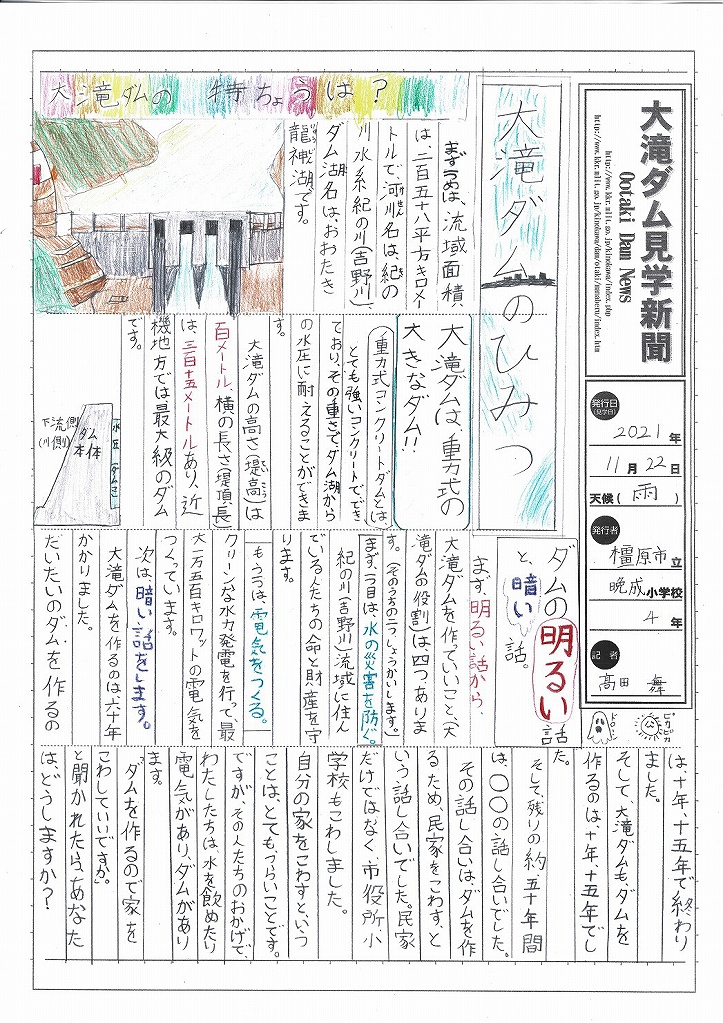 大滝ダム見学新聞
Ootaki Dam News
http://www.kkr.mlit.go.jp/kinokawa/index.php
発行日
(見学日)
2021年
11月22日
天候(雨)
発行者
橿原市立
晩成小学校
4年
記者
高田 舞
ピカピカ
大滝ダムのひみつ
大滝ダムの特ちょうは?
まず一つめは、流域面積
は、二百五十八平方キロメー
トルで、河川名は、紀の
川水系紀の川(吉野川)、
ダム湖名は、おおたき
龍神湖です。
大滝ダムは、重力式の
大きなダム!!
(重力式コンクリートダムとは、
とても強いコンクリートででき
ており、その重さでダム湖から
の水圧に耐えることができま
す。
大滝ダムの高さ(堤高)は
百メートル、横の長さ(堤頂長)
は、三百十五メートルあり、近
機地方では最大級のダム
です。
下流側
(川側)
ダム
本体
水圧
ダムの明るい話
と、暗い話。
まず、明るい話から、
大滝ダムを作っていいこと、大
滝ダムの役割)は、四つありま
す。(そのうちの二つ、しょうかいします。)
まず、一つ目は、水の災害を防ぐ。
紀の川(吉野川)流域に住ん
でいる人たちの命と財産を守
ります。
もう一つは、電気をつくる。
クリーンな水力発電を行って、最
大一万五百キロワットの電気を
つくっています。
次は、暗い話をします。
大滝ダムを作るのは、六十年
かかりました。
だいたいのダムを作るの
は、十年、十五年で終わり
ました。
そして、大滝ダムも、ダムを
作るのは、十年、十五年でし
た。
そして、残りの約五十年間
は、〇〇の話し合いでした。
その話し合いは、ダムを作
るため、民家をこわす、と
いう話し合いでした。民家
だけではなく市役所、小
学校もこわしました。
自分の家をこわすという
ことは、とても、づらいことです。
ですが、その人たちのおかげで、
わたしたちは、水を飲めたり
電気があり、ダムがあり
ます。
ダムを作るので家を
こわしていいですか。
と聞かれたら、あなた
は、どうしますか?